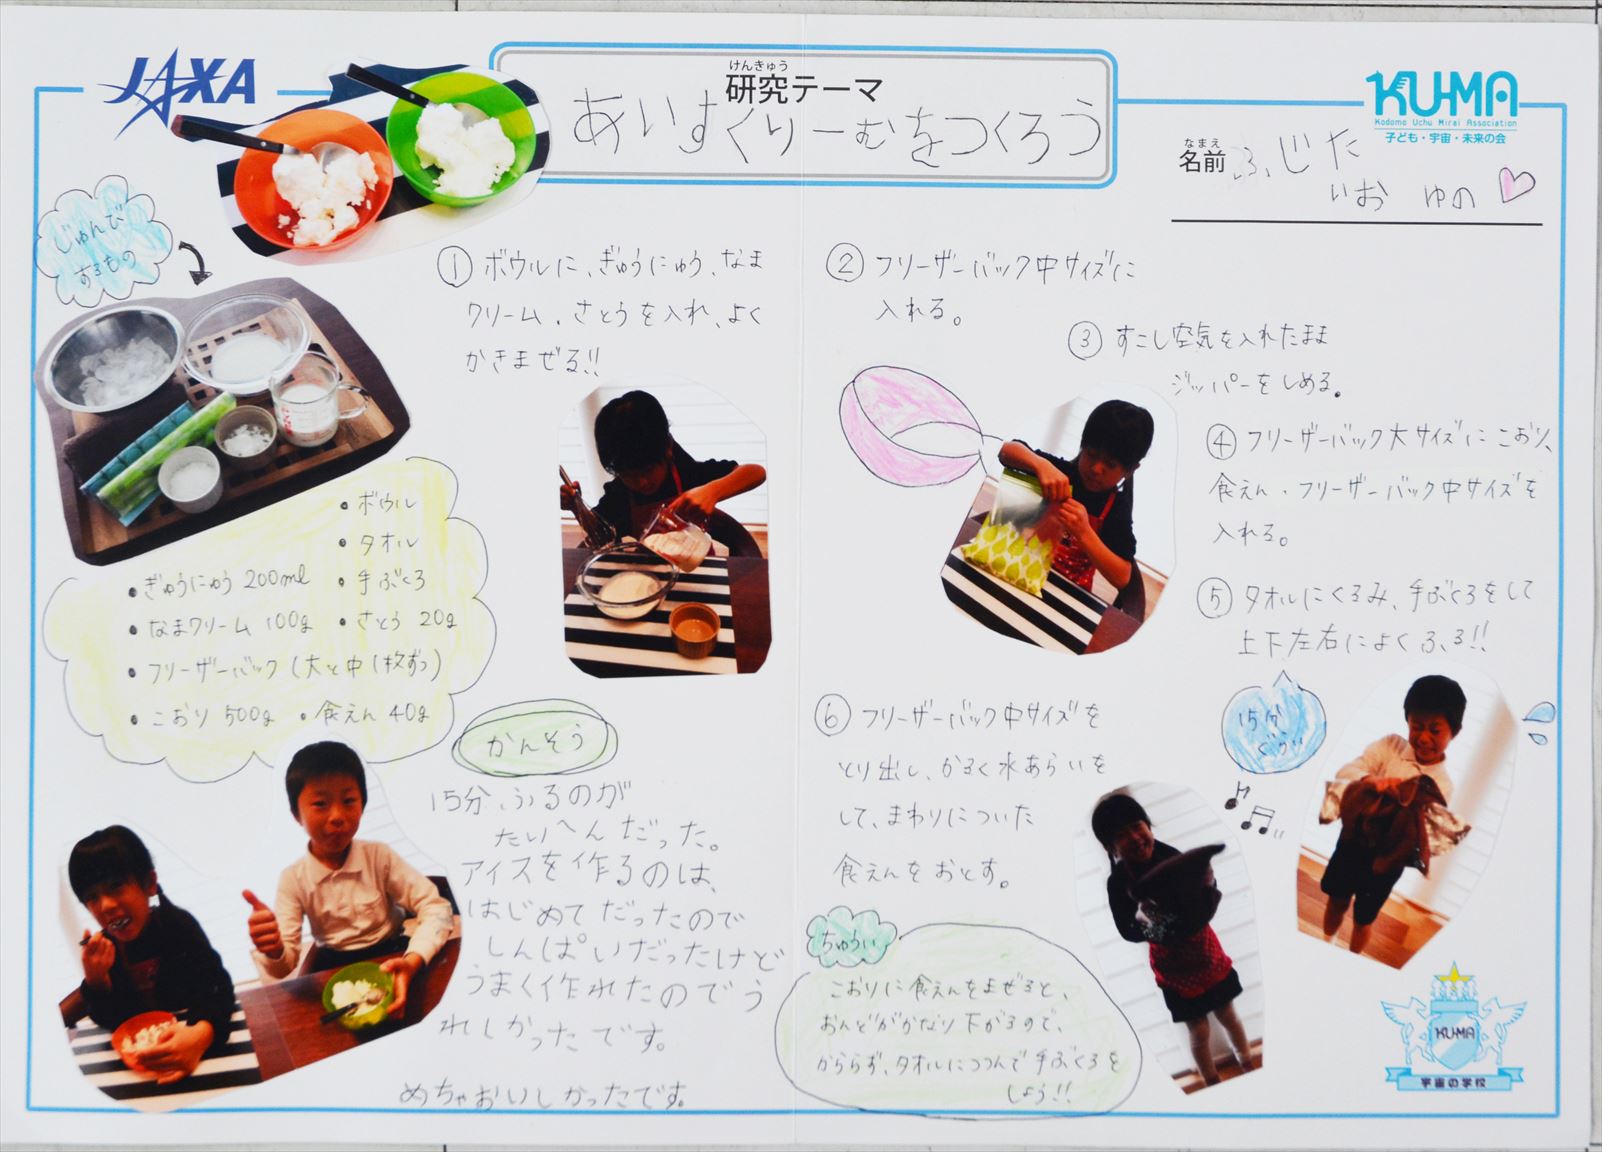 JAXA
けんきゅう
研究テーマ
あいすくりーむをつくろう
KU-MA
Kodomo Uchu Mirai Association
子ども・宇宙・未来の会
なまえ
名前
ふじた
いお ゆの
じゅんび
するもの
・ボウル
・タオル
・ぎゅうにゅう 200ml ・手ぶくろ
・なまクリーム 100g ・さとう 20g
・フリーザーバック(大と中1枚ずつ)
・こおり 500g ・食えん 40g
① ボウルに、ぎゅうにゅう、なま
クリーム、さとうを入れ、よく
かきまぜる!!
② フリーザーバック中サイズに
入れる。
③ すこし空気を入れたまま
ジッパーをしめる。
④ フリーザーバック大サイズにこおり、
食えん・フリーザーバック中サイズを
入れる。
⑤ タオルにくるみ、手ぶくろをして
上下左右によくふる!!
15分
ぐらい
⑥ フリーザーバック中サイズを
とり出し、かるく水あらいを
して、まわりについた
食えんをおとす。
ちゅうい
こおりに食えんをまぜると、
おんどがかなり下がるので、
かららず、タオルにつつんで手ぶくろを
しよう!!
かんそう
15分、ふるのが
たいへんだった。
アイスを作るのは、
はじめてだったので
しんぱいだったけど
うまく作れたのでう
れしかったです。
めちゃおいしかったです。
KU-MA
宇宙の学校